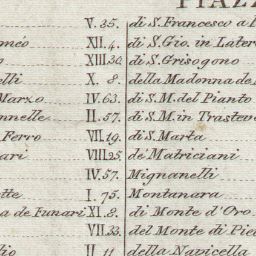 PIAZZ
V. 35. di S. Francesco a
méo XII. 4. di S. Gio. in Later
XIII 30. di S. Grisogono
lli X. 8. della Madonna de
Marzo IV. 63. di S. M. del Pianto
nnelle II. 57. di S. M. in Trasteve
Ferro VII. 19. di S. Marta
ari VIII 25. de' Matriciani
IV. 57. Mignanelli
tte I. 75. Montanara
a de Funari XI. 8. di Monte d'Oro
VII. 33. del Monte di Pie
lio II 11 della Navicella